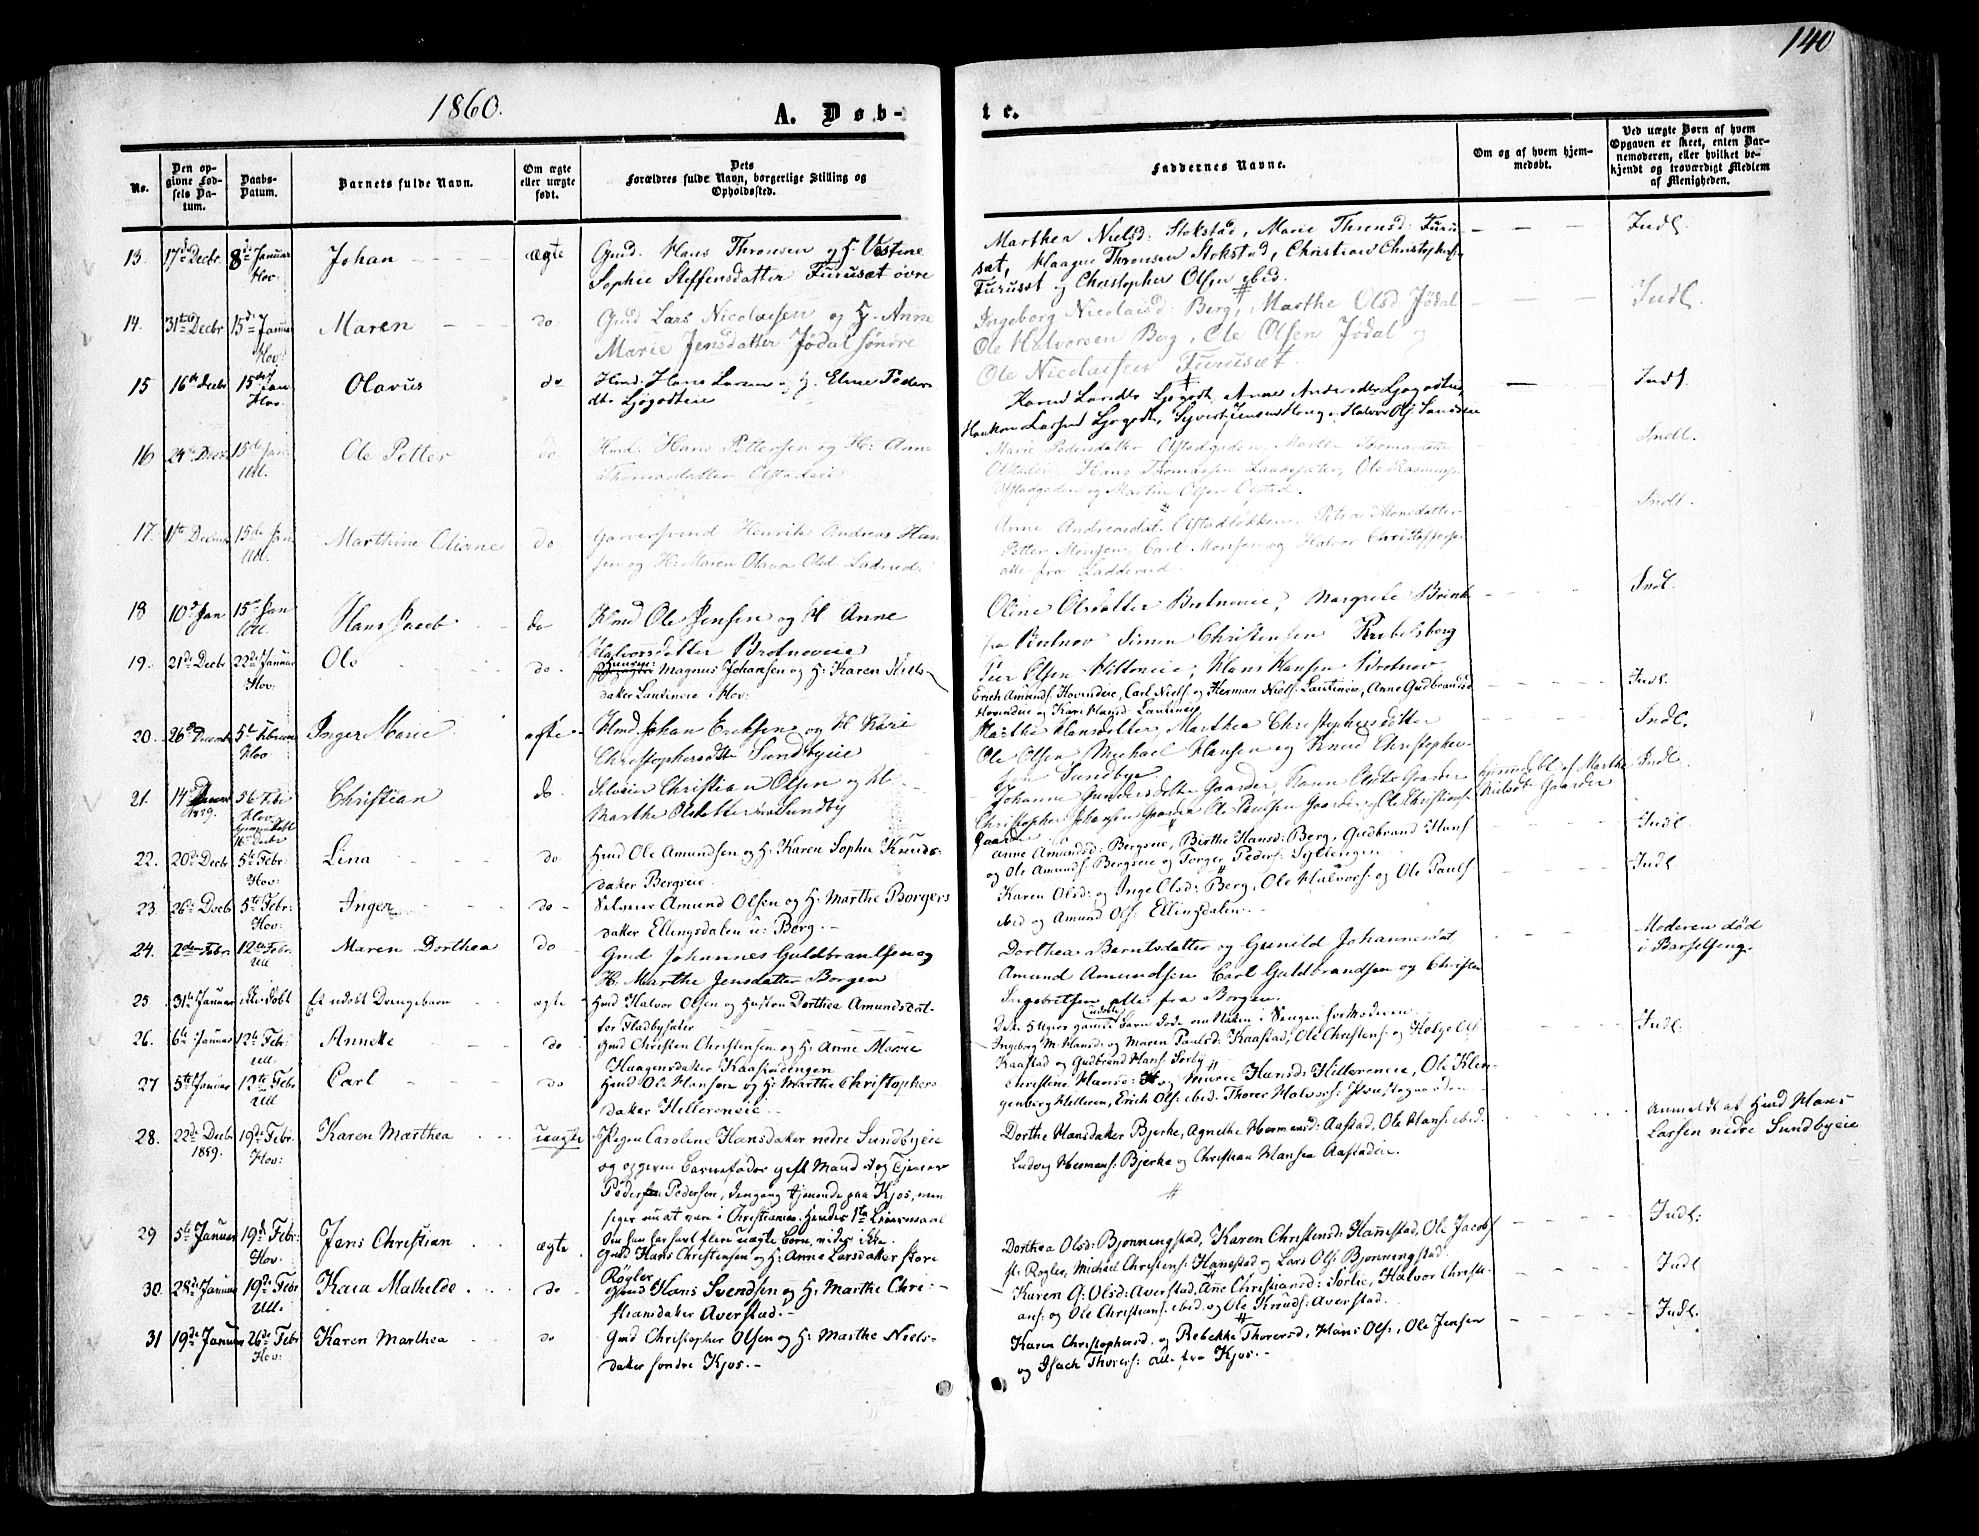 140
1860.
A. Døb-
te.
No.
Den op-
givne Fød-
sels Da-
tum.
Daabs-
Datum.
Barnets fulde Navn.
Om ægte
eller uægte
født.
Dets
Forældres fulde Navn, borgerlige Stilling og
Opholdssted.
Faddernes Navne.
Om og af hvem hjem-
medøbt.
Ved uægte Børn af hvem
Opgaven er skeet, enten Bar-
nemoderen, eller hvilket be-
kjendt og troværdigt Medlem
af Menigheden.
13. 17de Decbr. 8de Januar Johan ægte Gmd. Hans Thronsen og H. Vestine
Hov
Sophie Steffensdatter Furuset øvre
Marthea Nielsd: Stokstad, Marie Thronsd: Furu-
set, Haagen Thronsen Stokstad, Christian Christophers.
Furuset og Christopher Olsen ibid.
Indl.
14. 31te Decbr 15de Januar Maren do Gmd Lars Nicolaisen og H. Anne
Hov:
Marie Jensdatter Jødal søndre
Ingeborg Nicolaisd: Berg, Marthe Olsd. Jødal
Ole Halvorsen Berg, Ole Olsen Jødal og
Ole Nicolaisen Furuset.
Indl.
15 16de Decbr 15de Jan Olavus do Hmd. Hans Larsen og H. Eline Peders
Hov.
dtr Ljøgodteie
Indl.
16 24de Decbr 15de Jan Ole Petter do Hmd. Hans Pettersen og H: Anne
Ull.
Thomasdatter Olstadeie
Marie Pedersdatter Olstadgaden, Marthe Thomasdatter
Olstadeie, Hans Thomassen, Ole Rasmuss.
Olstadgaden og Martin Olsen Olstad.
Indl.
17. 1ste Decbr 15de Jan Marthine Oliane do Garversvend Henrik Andreas Han-
Ull.
sen og H: Maren Olava Olsd. Ladrud.
Anne Andreasdat. Olstadløkken, Petra Monsdatter
Petter Monsen, Carl Monsen og Halvor Christophersen
alle fra Ladderud.
Indl.
18 10de Jan 15de Jan Hans Jacob do Hmd Ole Jensen og H Anne
Ull.
Halvorsdatter Brotnoveie
Oline Olsdatter Brotnoveie, Margrete Brink
fra Brotnov Simen Christensen
Peer Olsen, Hans Hansen Brotnov
Indl
19. 21de Decbr 22de Januar Ole do Magnus Johansen og H: Karen Niels-
Hov:
datter Lautineie i Hov:
Erich Amunds. Hovindeie, Carl Niels. og Herman Niels. Lautineie, Anne Gudbrandsd
Hovindeie og Kari Hansd. Lautineie
Indl.
20. 26de Decembr 5te Februar Inger Marie ægte Hmd. Johan Eriksen og H Kari
Hov
Christophersdtr Sundbyeie
Marthe Hansdatter, Marthea Christophersdatter
Ole Olsen, Michael Hansen og Knud Christopher-
sen Sundbye
Indl.
21. 14de 1859. 5te Febr Christian do. Selveier Christian Olsen og H.
Hov
hjemmedøbt
16 Decbr
Marthe Olsdatter Sundby
Johanne Gundersdatter Gaarder, Karen Olsdtr Gaarder
Christopher Johansen Gaarder Ole Paulsen Gaarder og Ole Christians.
Gaarder
hjemmedøbt af Marthe
Nielsdt Gaarder
Indl.
22. 20de Decbr 5te Febr: Lina do Hmd Ole Amundsen og H: Karen Sophie Knuds-
Hov:
datter Bergseie
Anne Amundsd: Bergseie, Birthe Hansd: Berg, Gudbrand Hans.
og Ole Amunds. Bergseie og Torger Peders: Syltengen
Indl
23 26de Decbr 5te Febr: Inger do Selveier Amund Olsen og H: Marthe Borgers
Hov:
datter Ellingsdalen u: Berg.
Karen Olsd: og Inge Olsd: Berg, Ole Halvors: og Ole Pauls.
ibid og Amund Ols: Ellingsdalen.
Indl.
24. 2den Febr 12te Febr. Maren Dorthea do Gmd Johannes Guldbrandsen og
Ull
H. Marthe Jensdatter Borgen
Dorthea Berntsdatter og Gunild Johannesdat.
Amund Amundsen Carl Guldbrandsen og Christen
Ingebretsen alle fra Borgen.
Moderen død
i Barselseng.
25 31te Januar ikke døbt Et udøbt Drengebarn ægte Hmd Halvor Olsen og Hustru Dorthea Amundsdat-
ter Fladbysæter
Dette 5 Uger gamle udøbte Barn døde om Natten i Sengen hos Moderen.
26. 6te Januar 12te Febr: Annette do Gmd Christen Christensen og H: Anne Marie
Ull.
Haagensdatter Kaastadengen
Ingeborg M. Hansd: og Maren Paulsd: Kaastad, Ole Christens: og Helge Ols.
Kaastad og Gudbrand Hans: Sørby
Indl:
27 5te Januar 12te Febr Carl do Hmd Ole Hansen og H: Marthe Christophers
Ull
datter Hellereneie
Christine Hansd: og Marie Hansd: Hellereneie, Ole Klem-
Helleren, Erich Ols: ibid. Thorer Halvors:
28. 22de Decbr 1859. 19de Febr: Karen Marthea uægte Pigen Caroline Hansdatter nedre Sundbyeie
Hov:
og opgiven Barnefader gift Mand og Tjener
Peder Pedersen, dengang tjenende paa Kjos, men
siges nu at være i Christiania. Hendes 1ste Leiermaal
Om han har havt flere uægte Børn, vides ikke.
Dorthe Hansdatter Bjerke, Agnethe Hermansd: Aastad, Ole Hans: ibid.
Ludvig Hermans: Bjerke og Christian Hansen Aastadeie.
Anmeldt af Hmd Hans
Larsen nedre Sundbyeie
29 5te Januar 19de Febr: Jens Christian ægte. Gmd Hans Christensen og H: Anne Larsdatter store
Hov:
Røgler
Dorthea Olsd: Bjønningstad, Karen Christensd: Hannestad, Ole Jacobs.
st: Røgler, Michael Christens: Hannestad og Lars Ols: Bjønningstad
Indl:
30. 28de Januar 19de Febr Kaia Mathilde do Gmd Hans Svendsen og H: Marthe Chri-
Ull.
stiansdatter Averstad.
Karen G: Olsd: Averstad, Anne Christiansd: Sørlie, Halvor Christi-
ans: og Ole Christians: ibid. og Ole Knuds: Averstad.
Indl
31 19de Januar 26de Febr Karen Marthea do Gmd Christopher Olsen og H: Marthe Niels-
Hov:
datter søndre Kjos.
Karen Christophersd. og Rebekka Thorersd, Hans Ols:, Ole Jensen
og Isach Thorers: alle fra Kjos.
Indl.